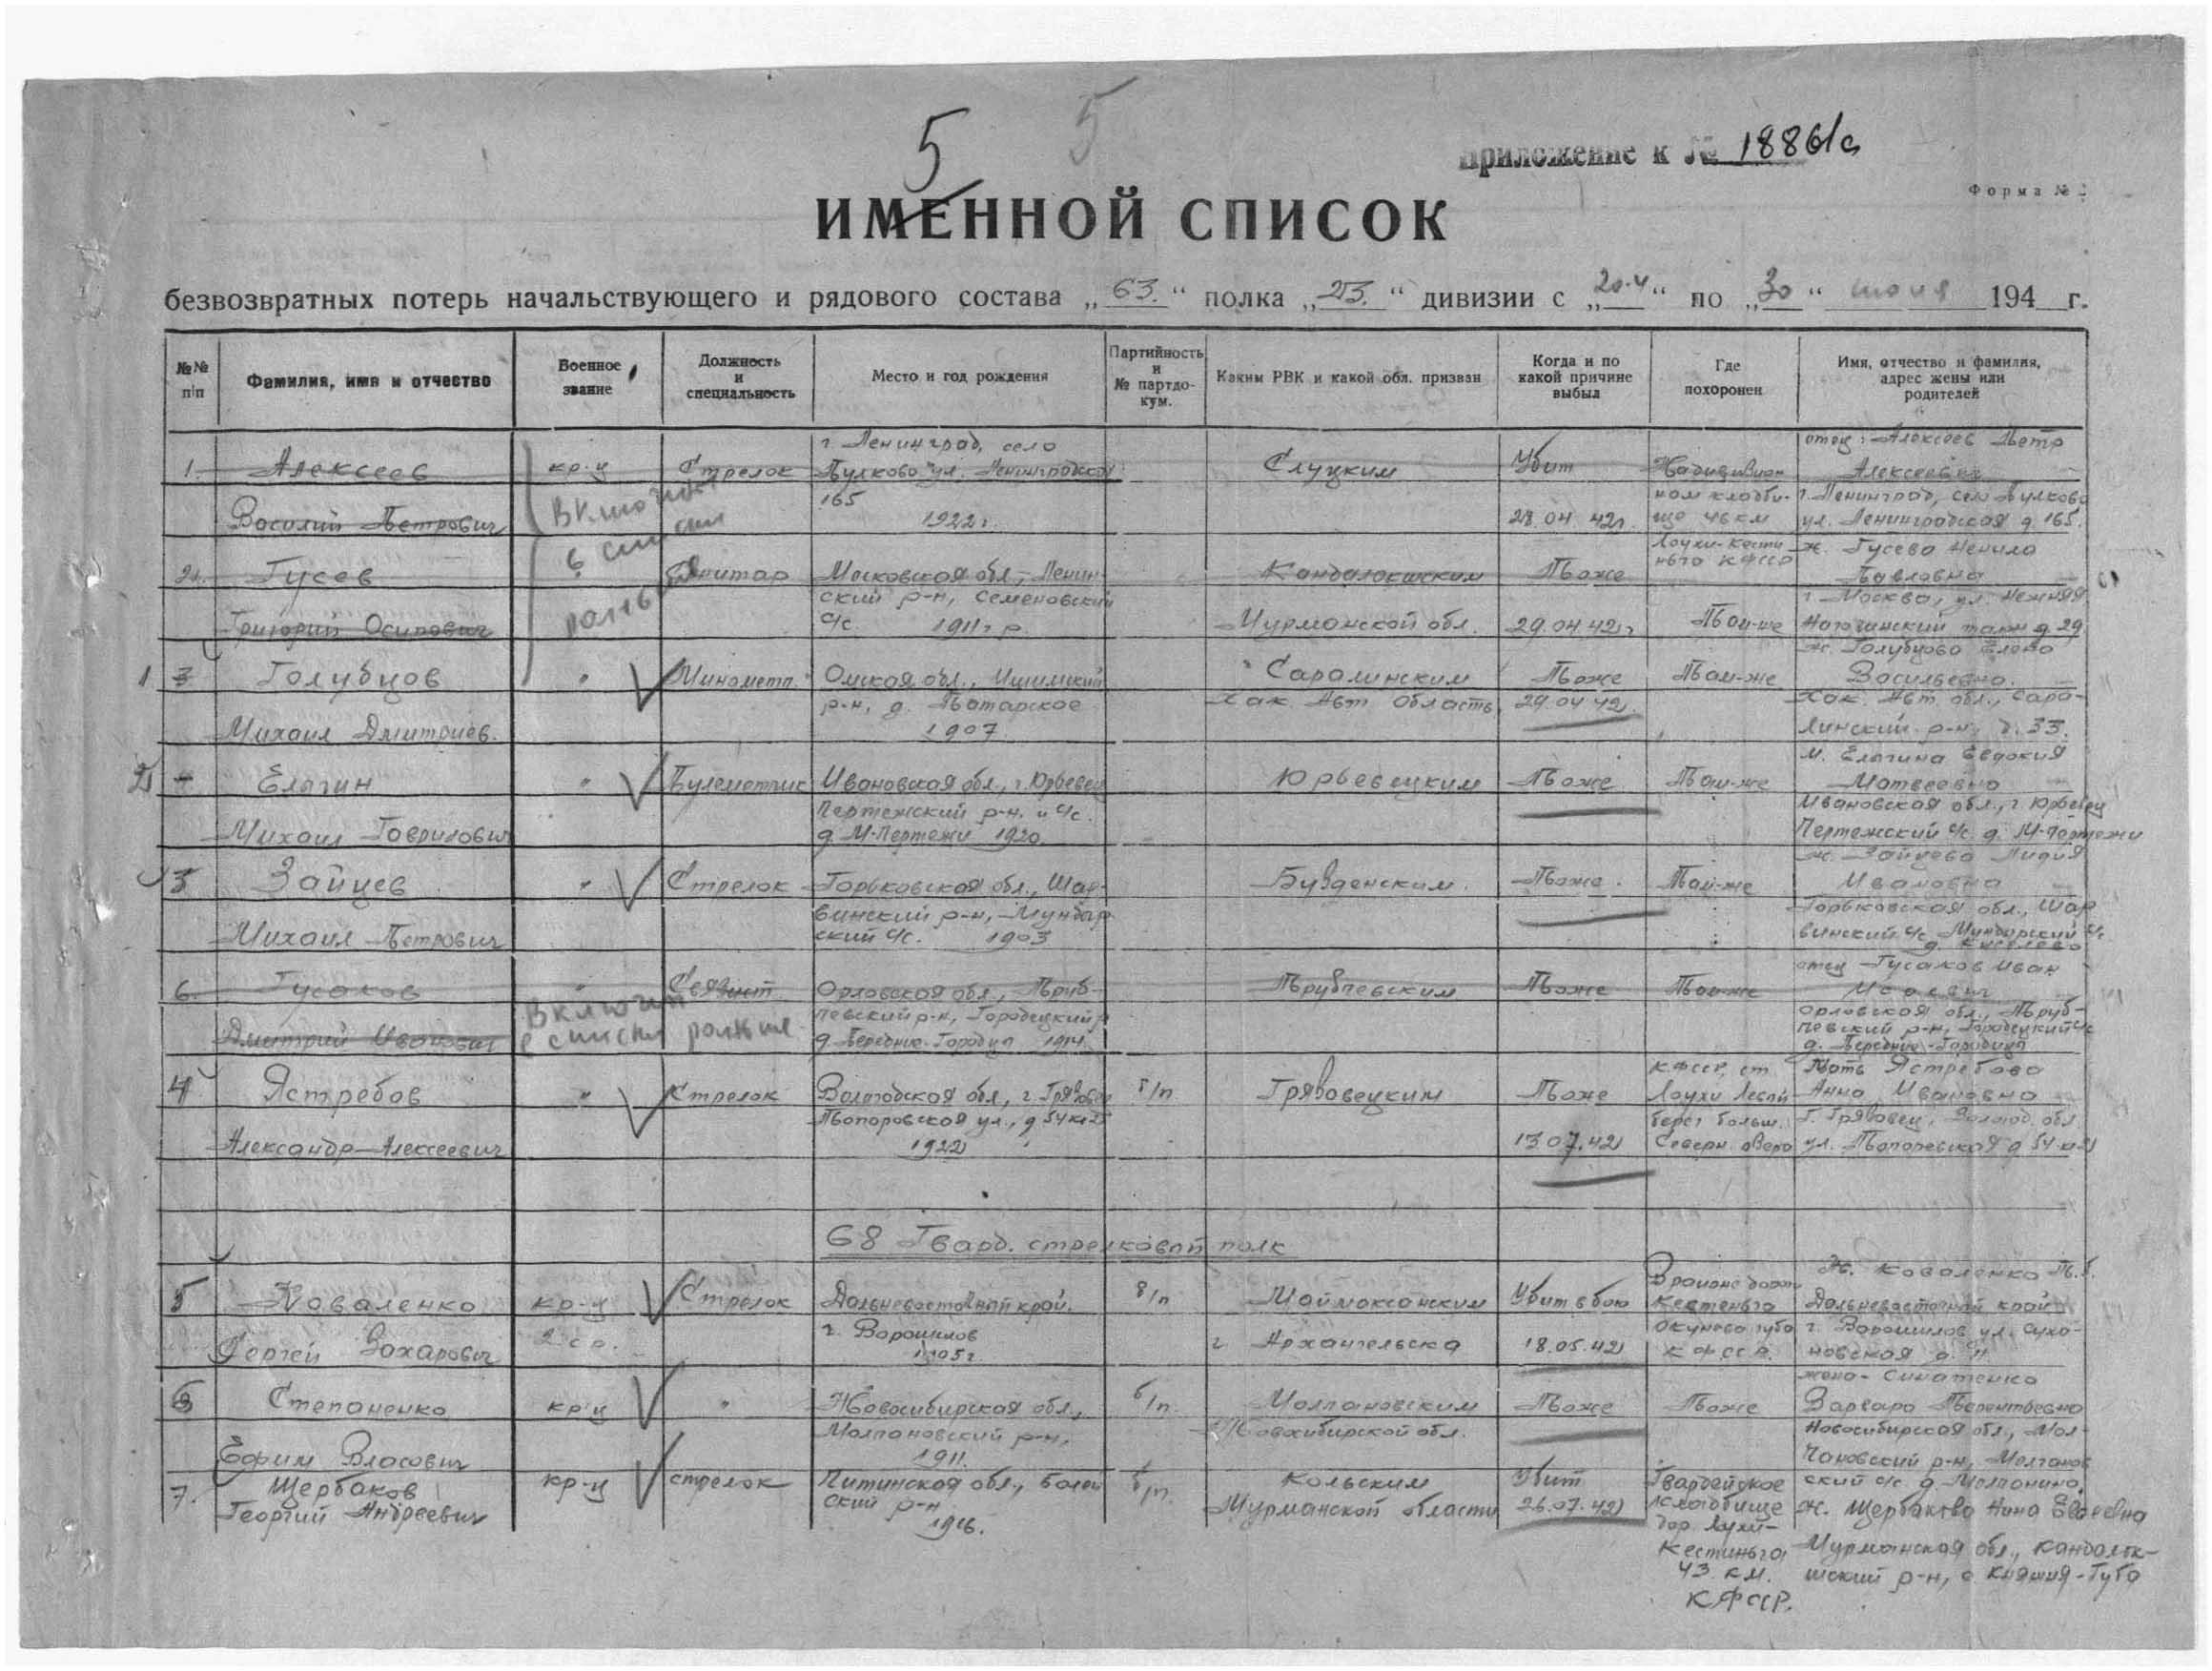 5 5
Приложение к № 1886/с
Форма №
ИМЕННОЙ СПИСОК
безвозвратных потерь начальствующего и рядового состава „63.“ полка „23.“ дивизии с „20.4“ по „30“ июня 194 г.
№№ п/п
Фамилия, имя и отчество
Военное звание
Должность и специальность
Место и год рождения
Партийность и № партдокум.
Каким РВК и какой обл. призван
Когда и по какой причине выбыл
Где похоронен
Имя, отчество и фамилия, адрес жены или родителей
1. Алексеев Василий Петрович
кр-ц
Стрелок
г. Ленинград, село
Пулково ул. Ленинградская
165
1922г.
Слуцким
Убит
28.04.42г.
46 км
отец: Алексеев Петр
Алексеевич
г. Ленинград, село Пулково
ул. Ленинградская д. 165.
Включен
в списки
раньше
2. Гусев
Григорий Осипович
Санитар
Московская обл., Ленин-
ский р-н, Семеновский
с/с. 1911г.р.
Кандалакшским
Мурманской обл.
Тоже
29.04.42г.
Лоухи-Кести-
ньга КФССР
Там-же
ж. Гусева Ненила
Павловна
г. Москва, ул. Нежняя
д. 29.
1 3 Голубцов
Михаил Дмитриев.
"
Минометч.
Омская обл., Ишимский
р-н, д. Татарское
1907
Саралинским
Хак. Авт. область
Тоже
29.04.42
Там-же
ж. Голубцова Елена
Васильевна.
Хак. Авт. обл., Сара-
линский р-н, д. 33.
2 Елагин
Михаил Гаврилович
"
Пулеметчик
Ивановская обл., г. Юрьевец
Пертежский р-н. и с/с.
д. М-Пертежи 1920.
Юрьевецким
Тоже
Там-же
м. Елагина Евдокия
Матвеевна
Ивановская обл., г. Юрьевец
Пертежский с/с. д. М-Пертежи
3 Зайцев
Михаил Петрович
"
Стрелок
Горьковская обл., Шар-
винский р-н,
ский с/с. 1903
Тоже.
Там-же
ж. Зайцева Лидия
Ивановна
Горьковская обл., Шар
винский с/с,
д. Киселево
6. Гусаков
Дмитрий Иванович
"
Связист
Включен
в списки раньше
Орловская обл., Труб-
чевский р-н, Городецкий
д. Передние-Городцы 1914.
Трубчевским
Тоже
Там-же
отец Гусаков Иван
Исаевич
Орловская обл., Труб-
чевский р-н, Городецкий с/с
д. Передние-Городцы
4 Ястребов
Александр Алексеевич
"
Стрелок
Вологодская обл., г. Грязовец
Топоровская ул., д 54 кв 2
1922
б/п
Грязовецким
Тоже
13.07.42
КФССР, ст.
Лоухи Левый
берег больш.
Северн. озера
Мать Ястребова
Анна Ивановна
г. Грязовец, Волог. обл
ул. Топоровская д 54 к 2
68 Гвард. стрелковый полк
5 Коваленко
Сергей Захарович
кр-ц
Стрелок
Дальневосточный край.
г. Ворошилов
1905г.
б/п
Маймаксанским
г. Архангельска
Убит в бою
18.05.42
В районе дороги
Кестеньга
Окунева губа
КФССР.
Ж. Коваленко
Дальневосточный край
г. Ворошилов ул. Суха-
новская д. 11
6 Степаненко
Ефим Власович
кр-ц
"
Новосибирская обл.,
Молчановский р-н,
1911.
б/п.
Молчановским
Новосибирской обл.
Тоже
Тоже
жена-
Варвара Терентьевна
Новосибирская обл., Мол-
чановский р-н, Молчанов
ский с/с д. Молчанино.
7. Щербаков
Георгий Андреевич
кр-ц
стрелок
Читинская обл., Балей
ский р-н
1916.
б/п.
Кольским
Мурманской области
Убит
26.07.42
Гвардейское
кладбище
дор. Лухи-
Кестиньга
43 км.
КФССР.
ж. Щербакова Нина
Мурманская обл., Кандалак-
шский р-н, с. Княжия-Губа